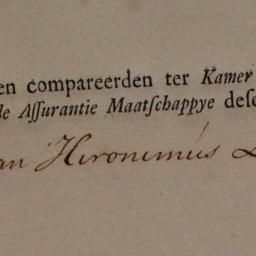 en compareerden ter Kamer
de Aſſurantie Maatſchappye deſ
an Hironimus